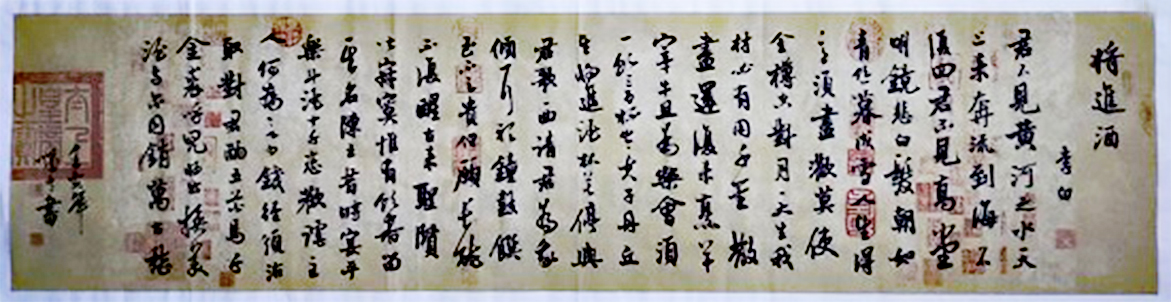 將進酒
李白
君不見黃河之水天
上来奔流到海不
復回君不見高堂
明鏡悲白髮朝如
青絲暮成雪人生得
意須盡歡莫使
金樽空對月天生我
材必有用千金散
盡還復來烹羊
宰牛且為樂會須
一飲三百杯岑夫子丹丘
生將進酒杯莫停與
君歌一曲請君為我
傾耳聽鐘鼓饌
玉不足貴但願長醉
不復醒古來聖賢
皆寂寞惟有飲者留
其名陳王昔時宴平
樂斗酒十千恣歡謔主
人何為言少錢徑須沽
取對君酌五花馬千
金裘呼兒將出換美
酒與爾同銷萬古愁
年
書